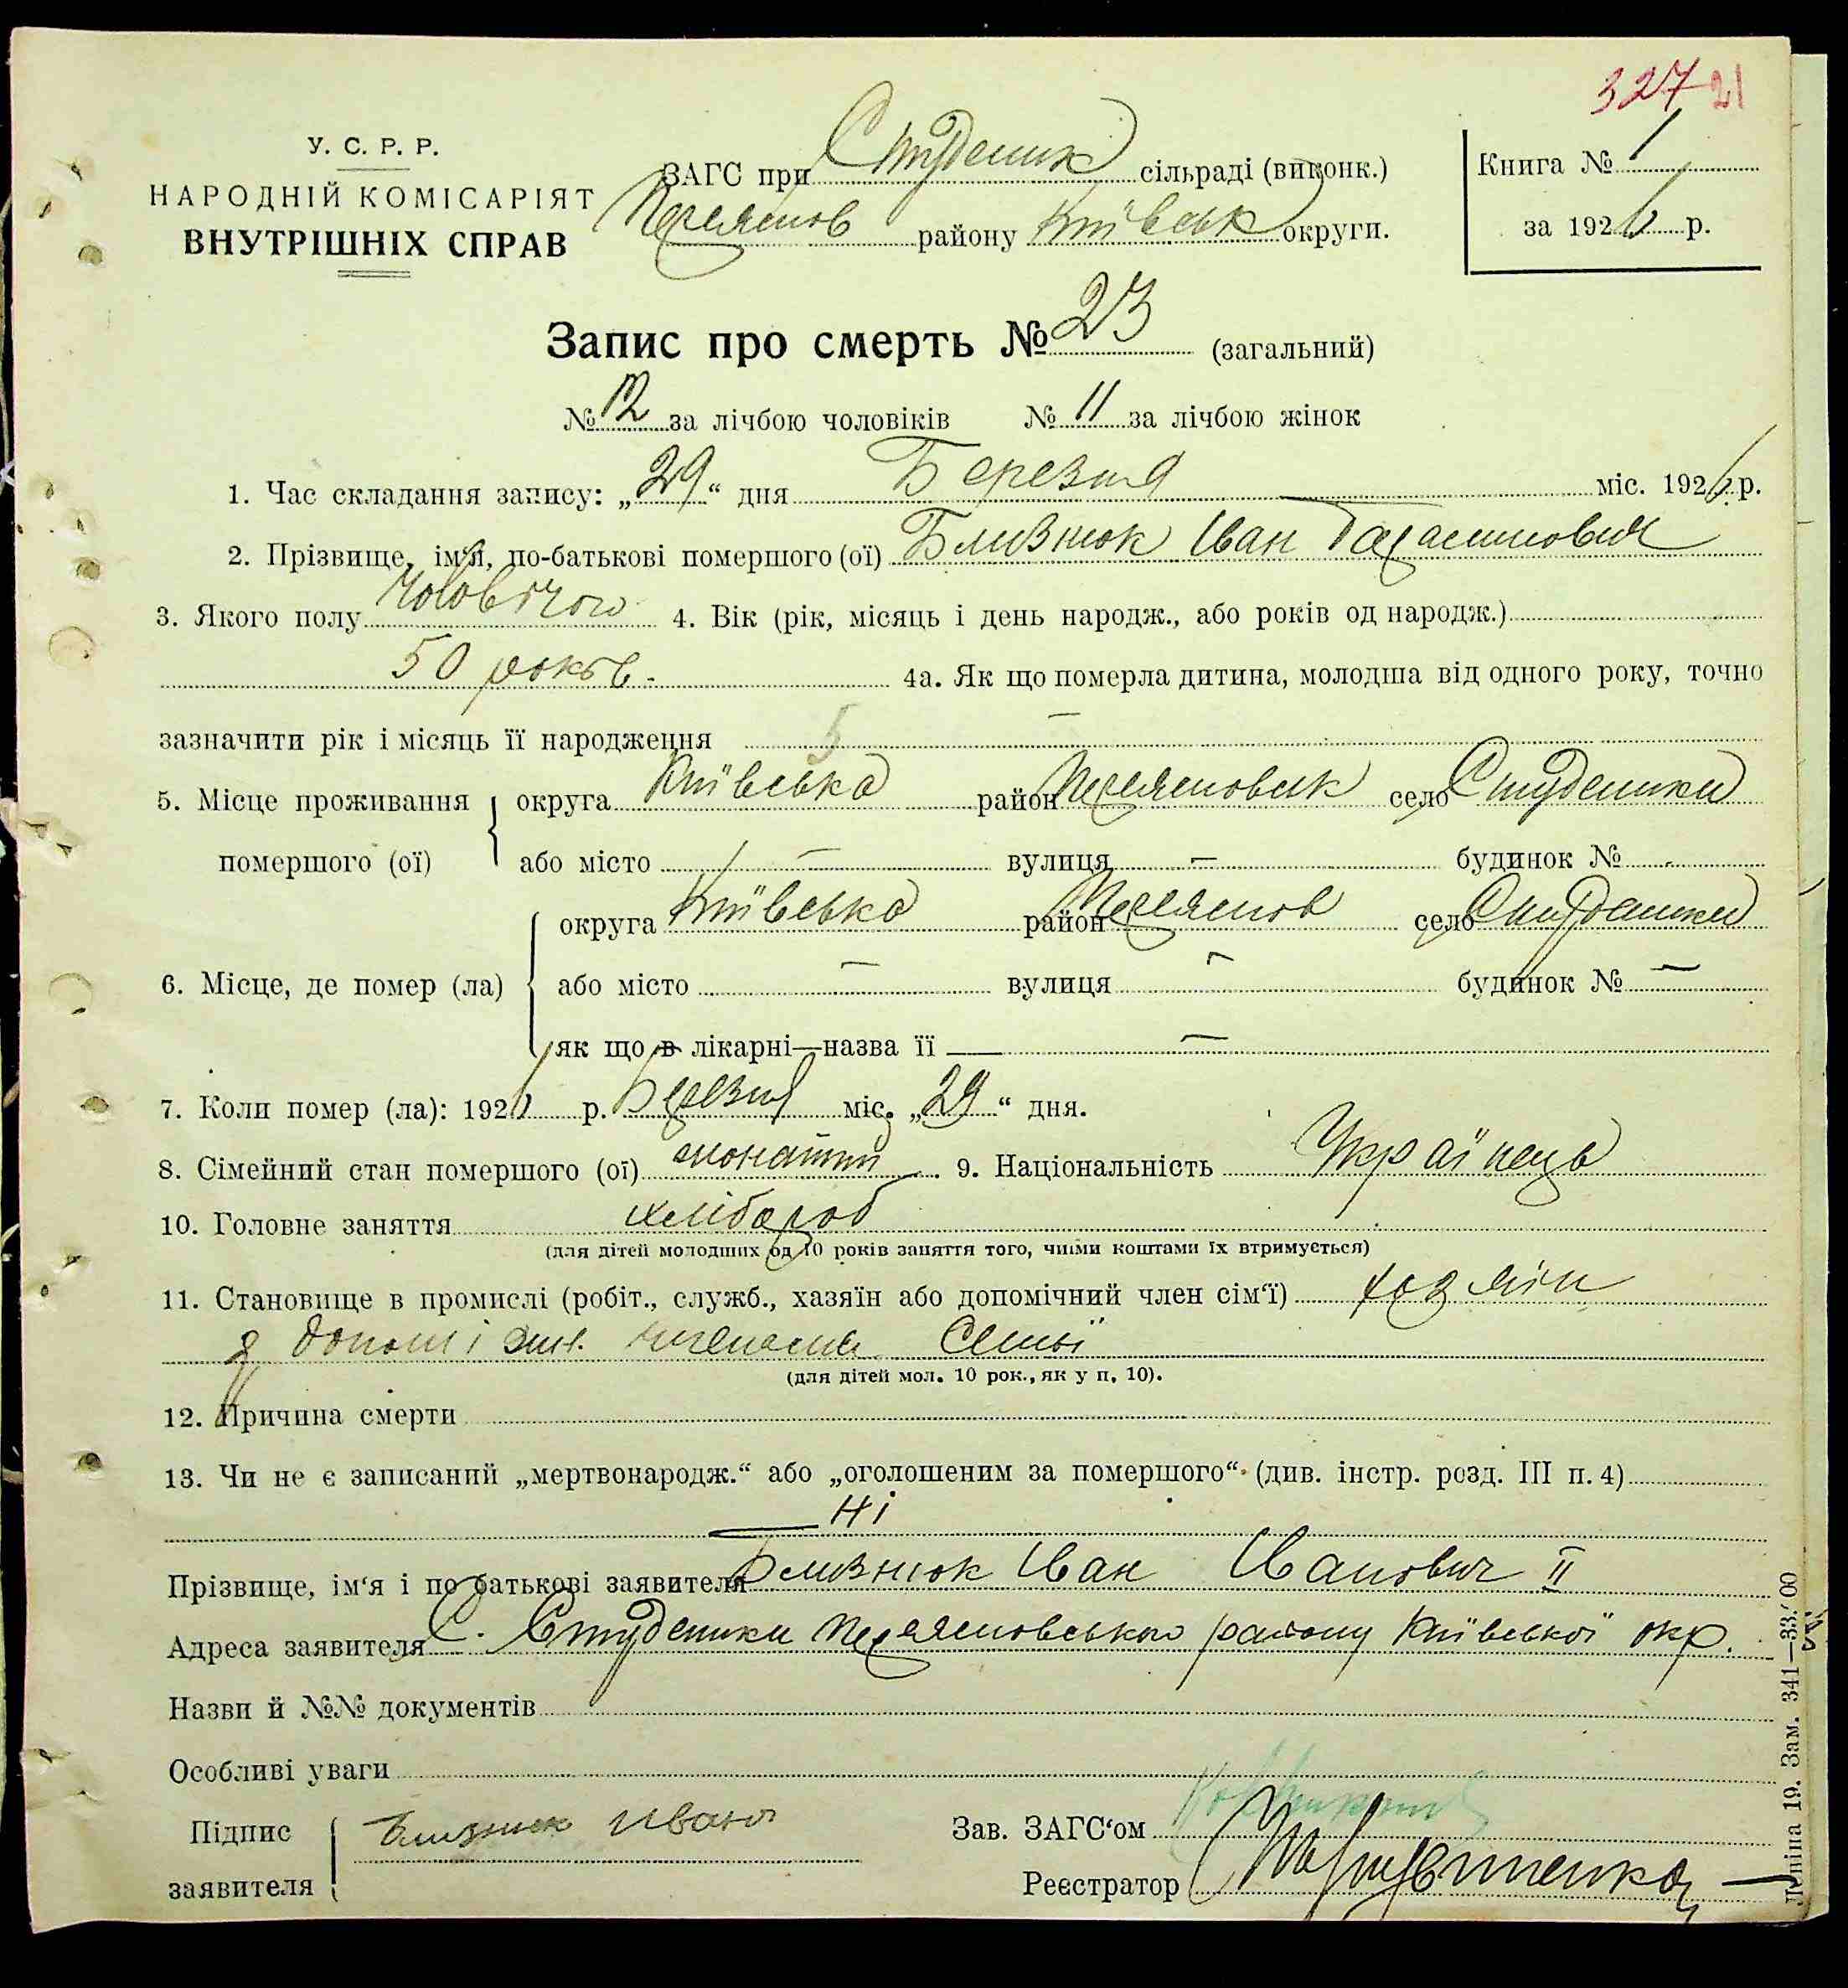 327 21
У. С. Р. Р.
НАРОДНІЙ КОМІСАРІЯТ
ВНУТРІШНІХ СПРАВ
ЗАГС при Студеник сільраді (виконк.)
Переяслов району Київськ округи.
Книга № 1
за 1926 р.
Запис про смерть № 23 (загальний)
№ 12 за лічбою чоловіків № 11 за лічбою жінок
1. Час складання запису: „29“ дня Березня міс. 1926 р.
2. Прізвище, ім‘я, по-батькові помершого (ої) Близнюк Іван Гарасимович
3. Якого полу чоловічого 4. Вік (рік, місяць і день народж., або років од народж.)
50 років. 4а. Як що померла дитина, молодша від одного року, точно
зазначити рік і місяць її народження —
5. Місце проживання помершого (ої) округа Київська район Переясловськ село Студеники
або місто — вулиця — будинок № -
6. Місце, де помер (ла) округа Київська район Переяслов село Студеники
або місто — вулиця — будинок № —
як що в лікарні—назва її —
7. Коли помер (ла): 1926 р. Березня міс. „29“ дня.
8. Сімейний стан помершого (ої) жонатий. 9. Національність Українець
10. Головне заняття хлібороб
(для дітей молодших од 10 років заняття того, чиїми коштами їх втримується)
11. Становище в промислі (робіт., служб., хазяїн або допомічний член сім‘ї) хазяїн
з допоміжн. членами Семьї
(для дітей мол. 10 рок., як у п. 10).
12. Причина смерти
13. Чи не є записаний „мертвонародж.“ або „оголошеним за помершого“ (див. інстр. розд. III п. 4)
— Ні
Прізвище, ім‘я і по батькові заявителя Близнюк Іван Іванович II
Адреса заявителя С. Студеники Переясловського району Київської окр.
Назви й №№ документів
Особливі уваги
Підпис заявителя Близнюк Иван
Зав. ЗАГС‘ом
Реєстратор
Леніна 19. Зам. 341—33.‘00